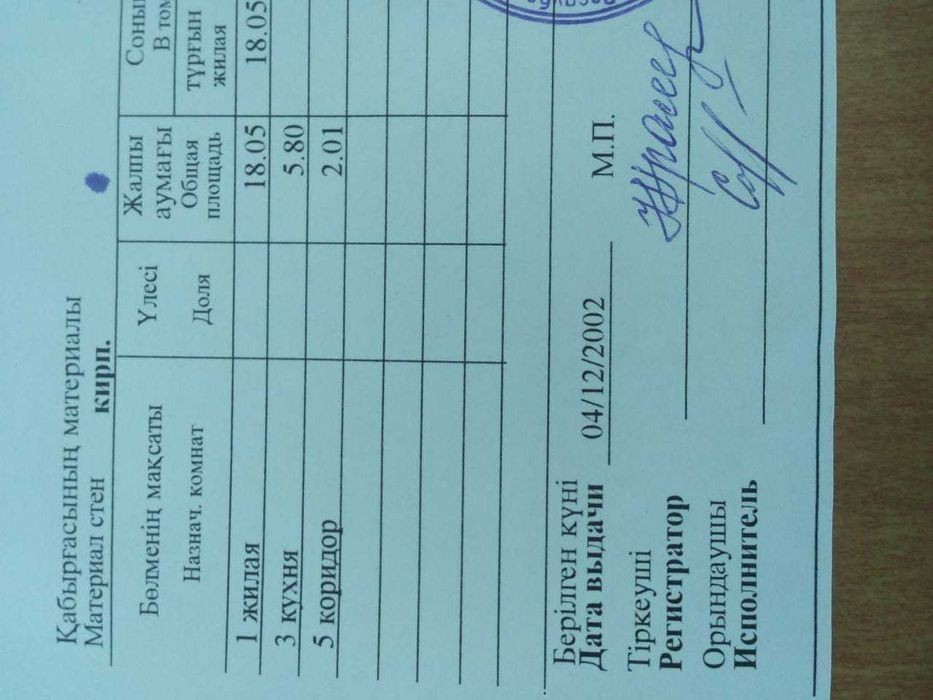 Қабырғасының материалы
Материал стен кирп.
Бөлменің мақсаты
Назнач. комнат
Үлесі
Доля
Жалпы
аумағы
Общая
площадь
В том
тұрғын
жилая
1 жилая 18.05 18.05
3 кухня 5.80
5 коридор 2.01
Берілген күні
Дата выдачи 04/12/2002 М.П.
Тіркеуші
Регистратор
Орындаушы
Исполнитель